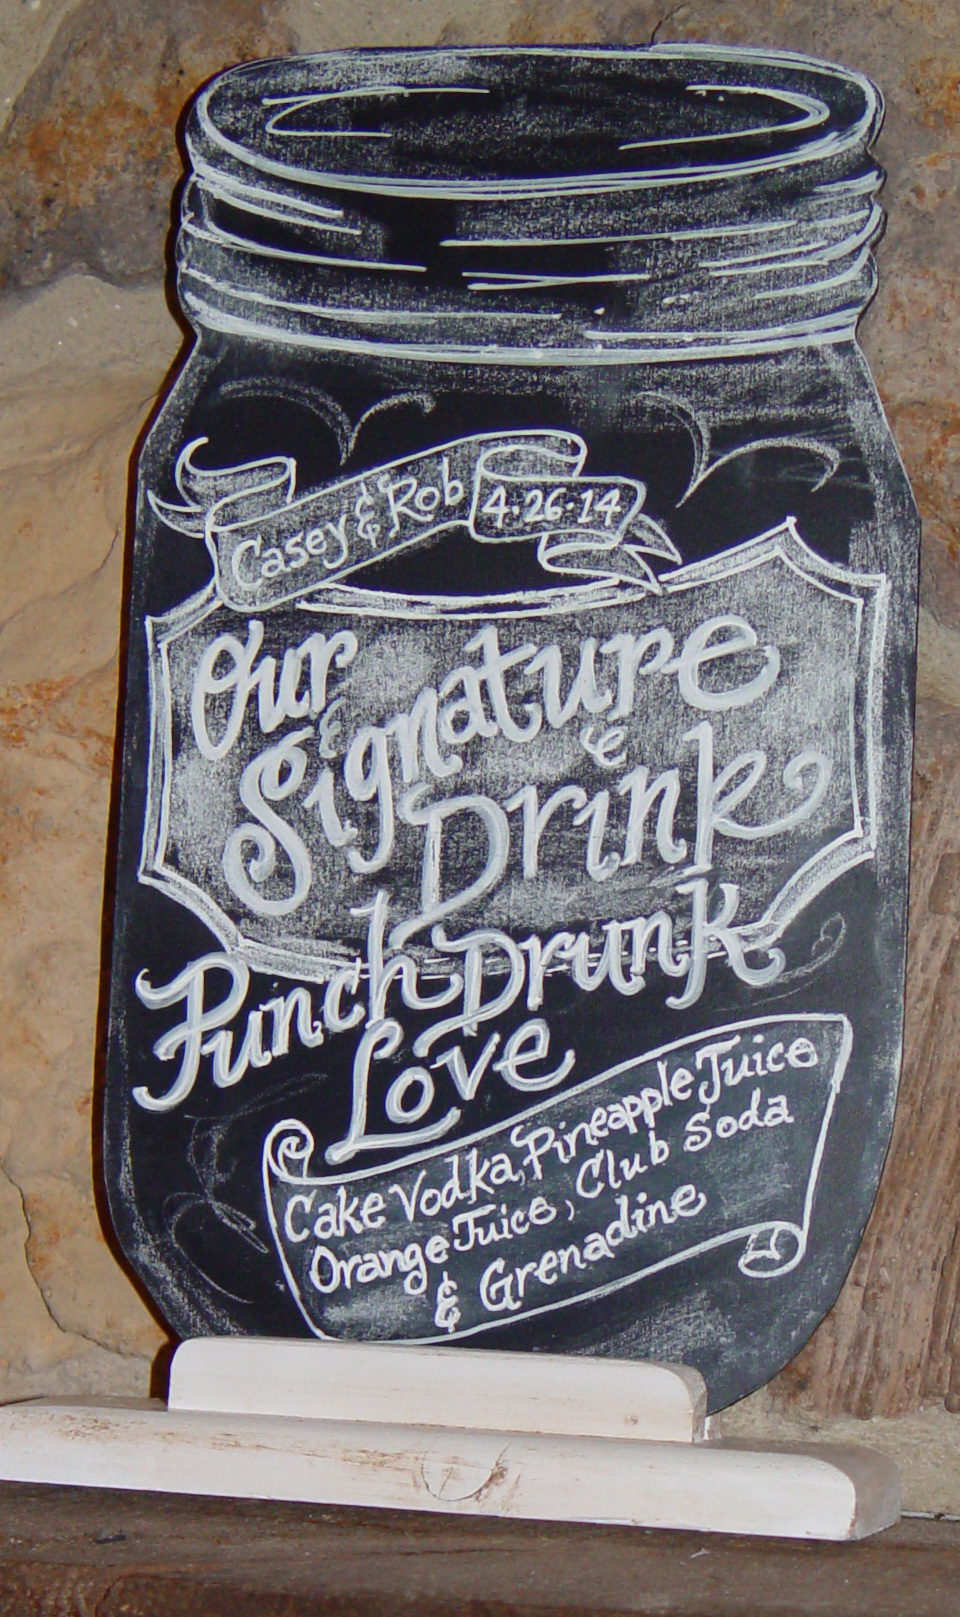 Casey & Rob 4·26·14
Our
Signature
Drink
Punch Drunk
Love
Cake Vodka, Pineapple Juice
Orange Juice, Club Soda
& Grenadine